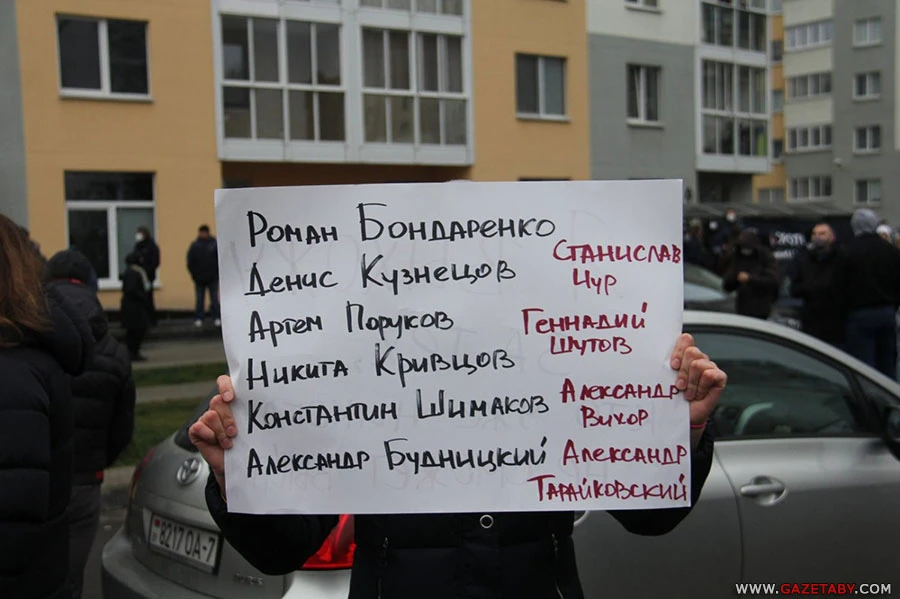 Роман Бондаренко
Денис Кузнецов
Артем Поруков
Никита Кривцов
Константин Шимаков
Александр Будницкий
Станислав
Чур
Геннадий
Шутов
Александр
Вихор
Александр
Тарайковский
8217 OA-7
WWW.GAZETABY.COM